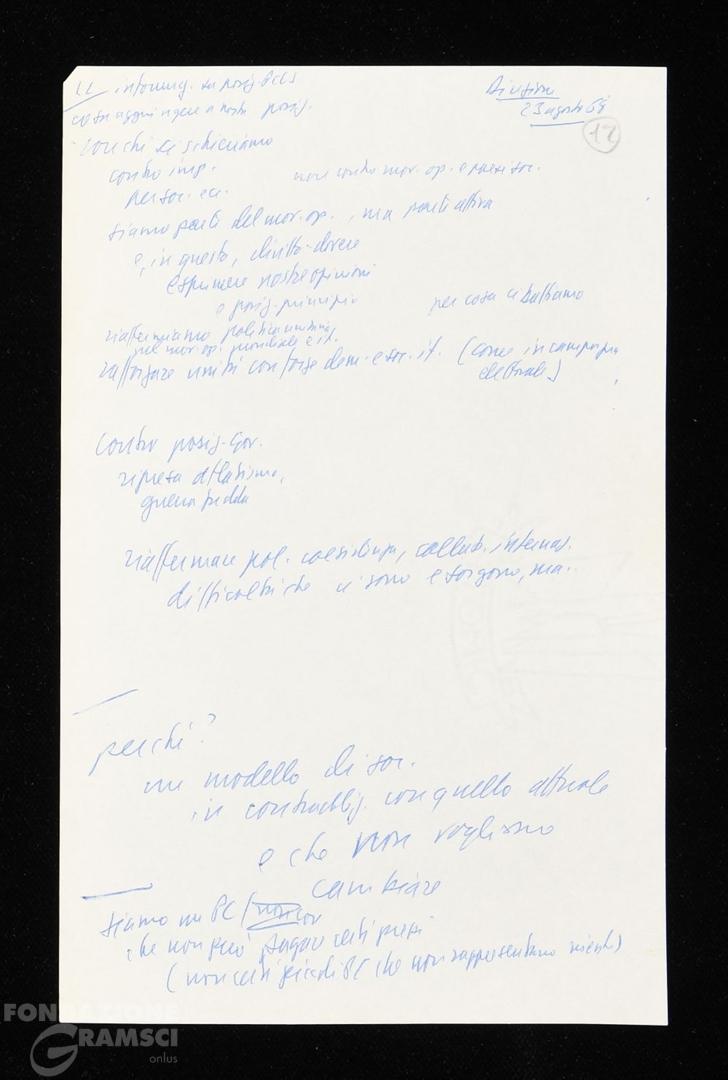 LL informaz. su posiz. PCUS
Direzione
23 agosto 68
cosa aggiungere a nostra posiz.
12
con chi ci schieriamo
contro imp.
non contro mov. op. e paesi soc.
per soc. ecc.
siamo parte del mov. op., ma parte attiva
e, in questo, diritto-dovere
esprimere nostre opinioni
o posiz. principio
per cosa ci battiamo
riaffermiamo politica unitaria,
nel mov. op. mondiale e it.
rafforzare unità con forze dem. e soc. it. (come in campagna
elettorale)
contro posiz. Gov.
ripresa atlantismo,
guerra fredda
riaffermare pol. coesistenza, collab. internaz.
difficoltà che ci sono e sorgono, ma..
perché?
un modello di soc.
in contraddiz. con quello attuale
e che non vogliamo
cambiare
siamo un PC
che non può pagare certi prezzi
(non certi piccoli PC che non rappresentano niente)
FONDAZIONE
GRAMSCI
onlus